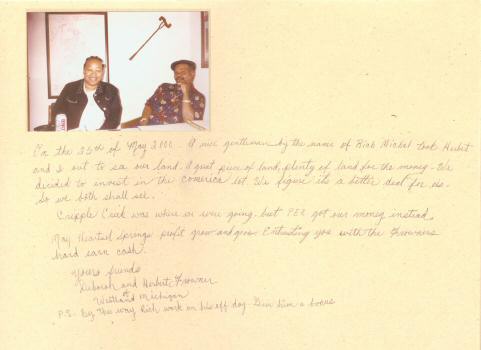 On the 25th of May 2000. A nice gentleman by the name of Rick Mickel took Herbert
and I out to see our land. A great piece of land, plenty of land for the money - We
decided to invest in the Comerica lot. We figure its a better deal for us.
So we both shall see.
Cripple Creek was where we were going, but PER got our money instead.
May Hartsel Springs profit grow and grow. Entrusting you with the Frowners
hard earn cash.
Yours friends
Deborah and Herbert Frowner
Westland Michigan
P.S. By the way Rich work on his off day. Give him a bonus